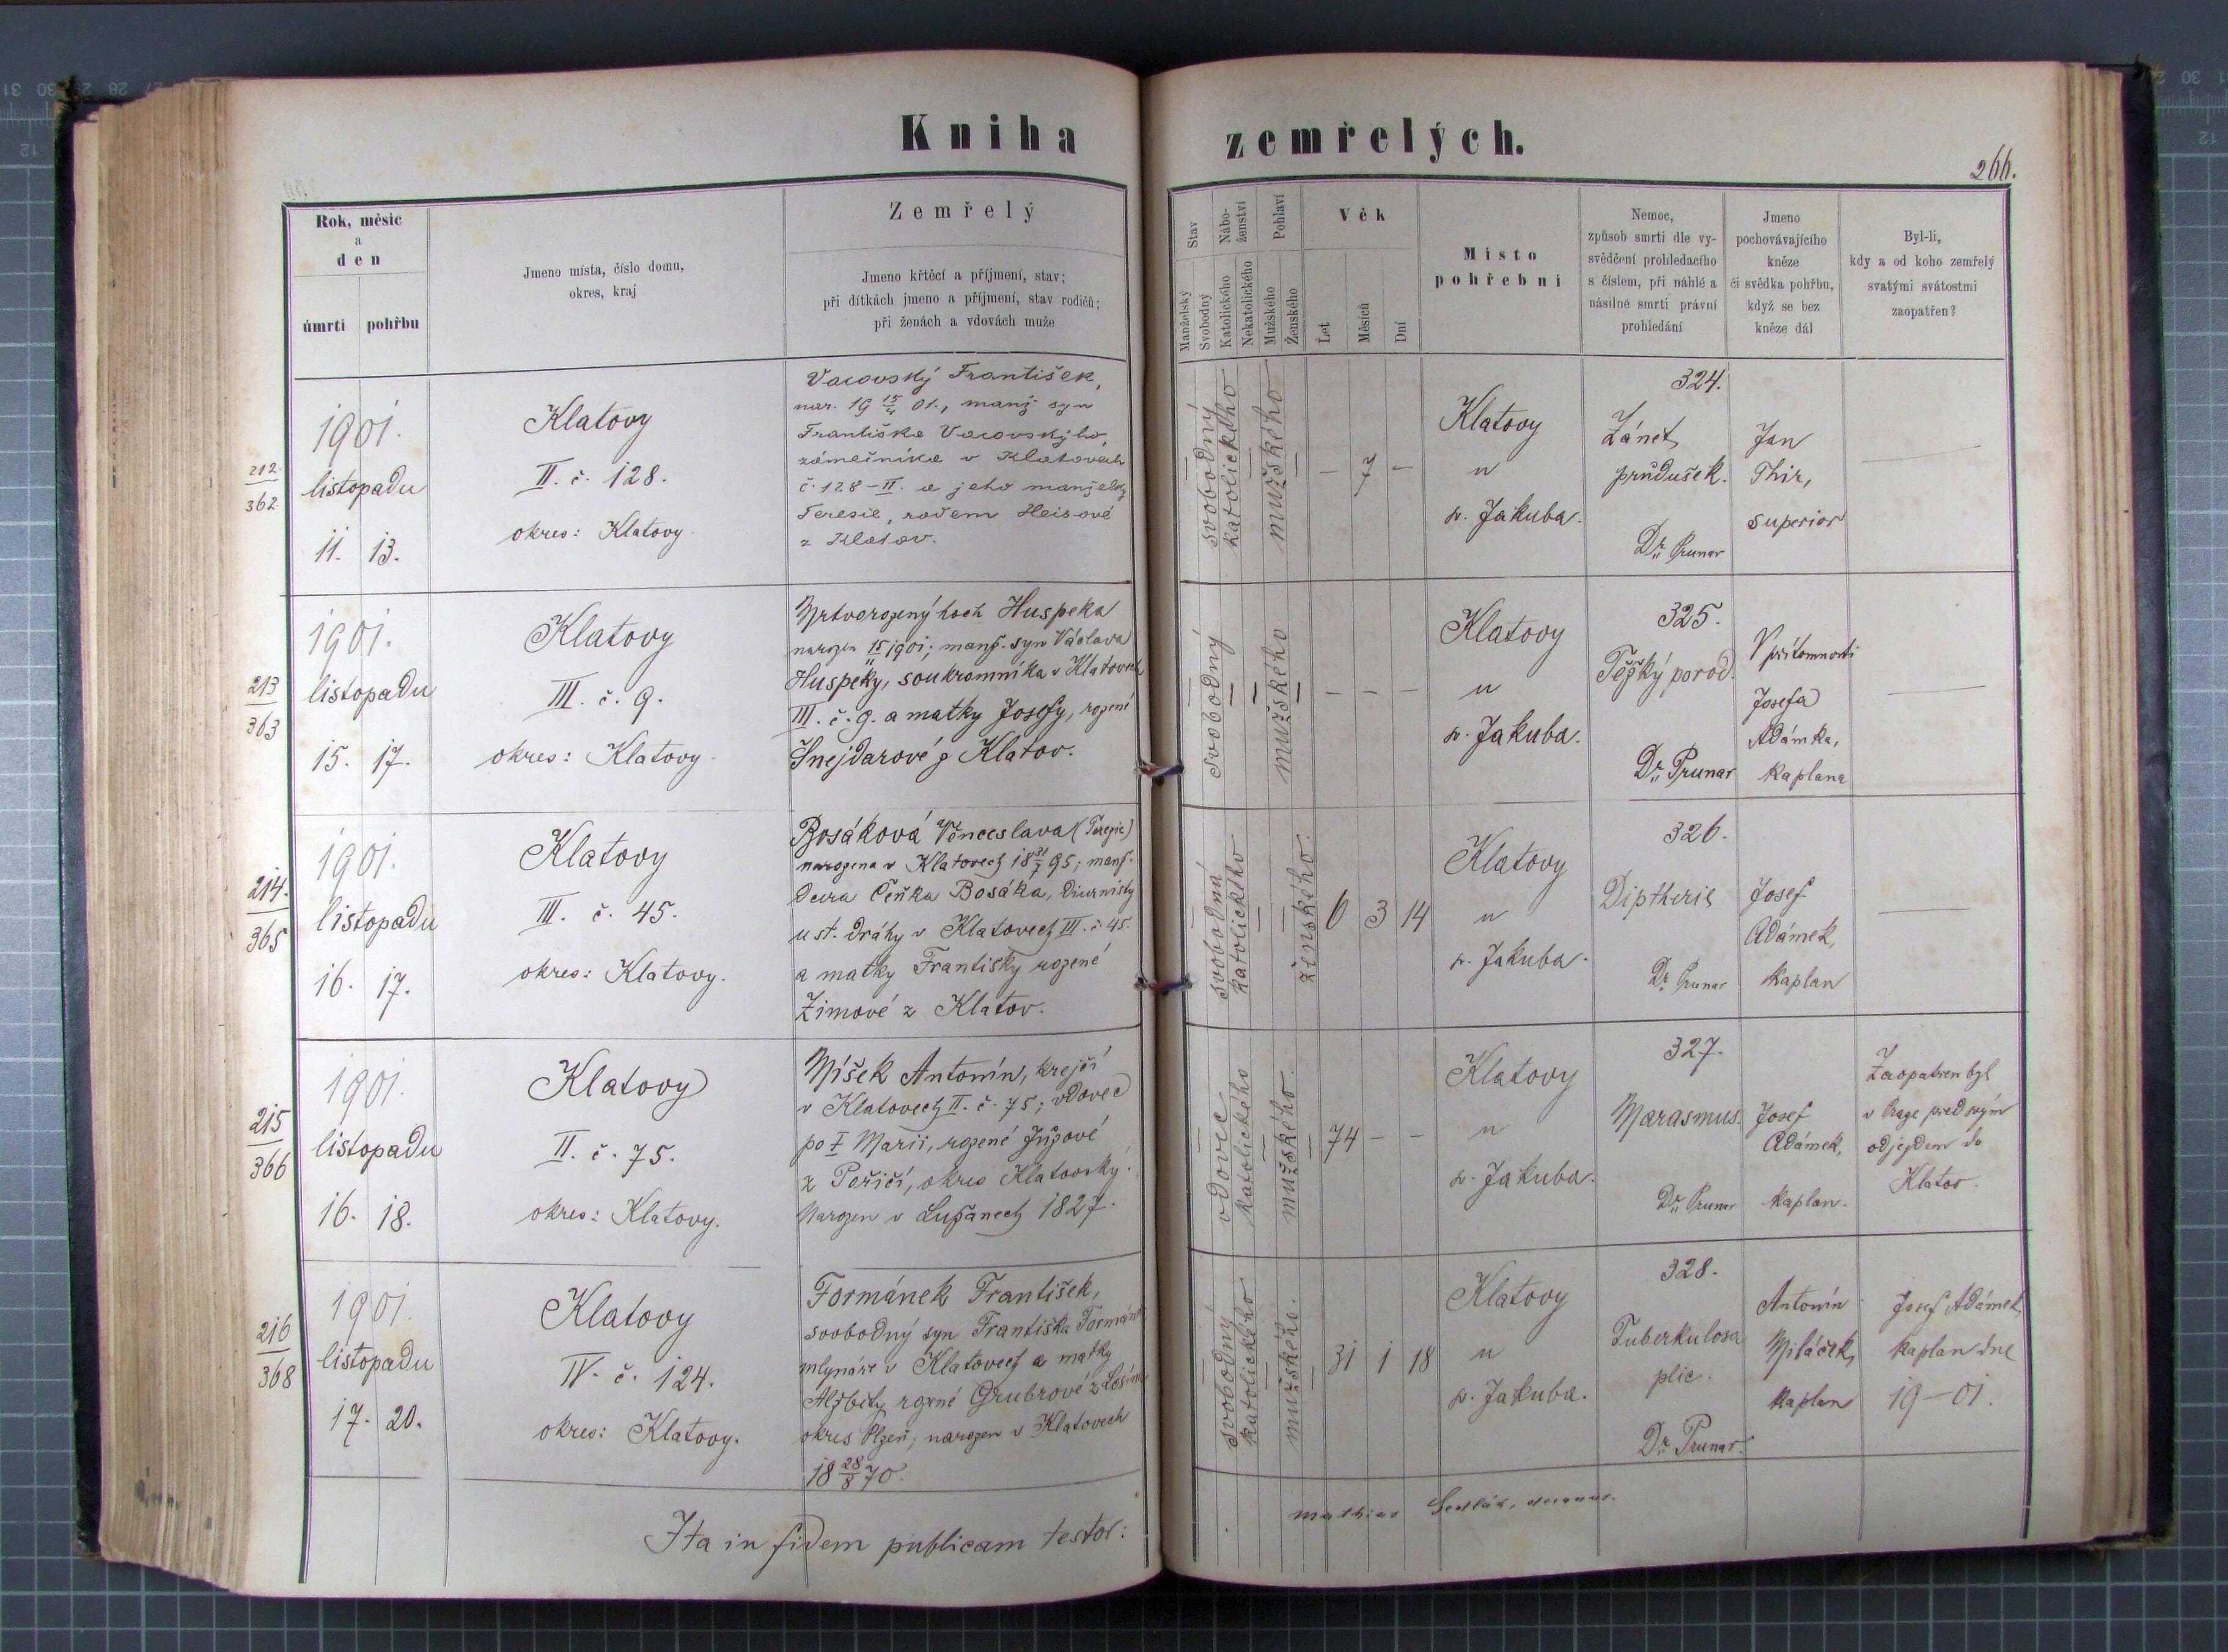 Kniha zemřelých.
266.
Rok, měsíc
a
den
úmrtí pohřbu
Jmeno místa, číslo domu,
okres, kraj
Zemřelý
Jmeno křtěcí a příjmení, stav;
při dítkách jmeno a příjmení, stav rodičů;
při ženách a vdovách muže
Stav
Manželský
Svobodný
Nábo-
ženství
Katolického
Nekatolického
Pohlaví
Mužského
Ženského
Věk
Let
Měsíců
Dní
Místo
pohřební
Nemoc,
způsob smrti dle vy-
svědčení prohledacího
s číslem, při náhlé a
násilné smrti právní
prohledání
Jmeno
pochovávajícího
kněze
či svědka pohřbu,
když se bez
kněze dál
Byl-li,
kdy a od koho zemřelý
svatými svátostmi
zaopatřen?
212.
362
1901.
listopadu
11. 13.
Klatovy
II. č. 128.
okres: Klatovy.
Vacovský František,
nar. 19 15/4 01., manž syn
Františka Vacovského,
zámečníka v Klatovech
č. 128 – II. a jeho manželky
Teresie, rodem Heisové
z Klatov.
svobodný
katolického
mužského
— 7 —
Klatovy
u
sv. Jakuba.
324.
Zánět
průdušek.
Dr. Prunar
Jan
Thir,
superior
213
363
1901.
listopadu
15. 17.
Klatovy
III. č. 9.
okres: Klatovy.
Mrtvorozený hoch Huspeka
narozen 15/11 1901; manž. syn Václava
Huspeky, soukromníka v Klatovech
III. č. 9. a matky Josefy, rozené
Šnejdarové z Klatov.
svobodný
mužského
— — —
Klatovy
u
sv. Jakuba.
325.
Těžký porod.
Dr. Prunar
V přítomnosti
Josefa
Adámka,
kaplana
214.
365
1901.
listopadu
16. 17.
Klatovy
III. č. 45.
okres: Klatovy.
Bosáková Věnceslava (Terezie)
narozena v Klatovech 18 31/7 95; manž.
dcera Čeňka Bosáka, diurnisty
u st. dráhy v Klatovech III. č. 45.
a matky Františky rozené
Zimové z Klatov.
svobodná
katolického
ženského.
6 3 14
Klatovy
u
sv. Jakuba.
326.
Diptherie
Dr. Prunar
Josef
Adámek,
kaplan
215
366
1901.
listopadu
16. 18.
Klatovy
II. č. 75.
okres: Klatovy.
Míšek Antonín, krejčí
v Klatovech II. č. 75; vdovec
po Marii, rozené
z Poříčí, okres Klatovský.
Narozen v Lužanech 1827.
vdovec
katolického
mužského.
74 — —
Klatovy
u
sv. Jakuba.
327.
Marasmus.
Dr. Prunar
Josef
Adámek,
kaplan.
Zaopatřen byl
v Praze před svým
odjezdem do
Klatov.
216
368
1901.
listopadu
17. 20.
Klatovy
IV. č. 124.
okres: Klatovy.
Formánek František,
svobodný syn Františka Formánka
mlynáře v Klatovech a matky
Alžběty rozené Grubrové z
okres Plzeň; narozen v Klatovech
18 28/8 70.
svobodný
katolického
mužského.
31 1 18
Klatovy
u
sv. Jakuba.
328.
Tuberkulosa
plic.
Dr. Prunar.
Antonín
Miláček,
kaplan
Josef Adámek,
kaplan dne
19 – 01.
Ita in fidem publicam testor:
Mathias Sedlák, decanus.